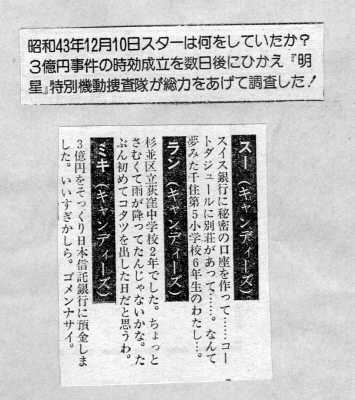 昭和43年12月10日スターは何をしていたか?
3億円事件の時効成立を数日後にひかえ『明
星』特別機動捜査隊が総力をあげて調査した!
スー(キャンディーズ)
スイス銀行に秘密の口座を作って……コー
トダジュールに別荘があって……。なんて
夢みた千住第5小学校6年生のわたし…。
ラン(キャンディーズ)
杉並区立荻窪中学校2年でした。ちょっと
さむくて雨が降ってたんじゃないかな。た
ぶん初めてコタツを出した日だと思うわ。
ミキ(キャンディーズ)
3億円をそっくり日本信託銀行に預金しま
した。いいすぎかしら。ゴメンナサイ。